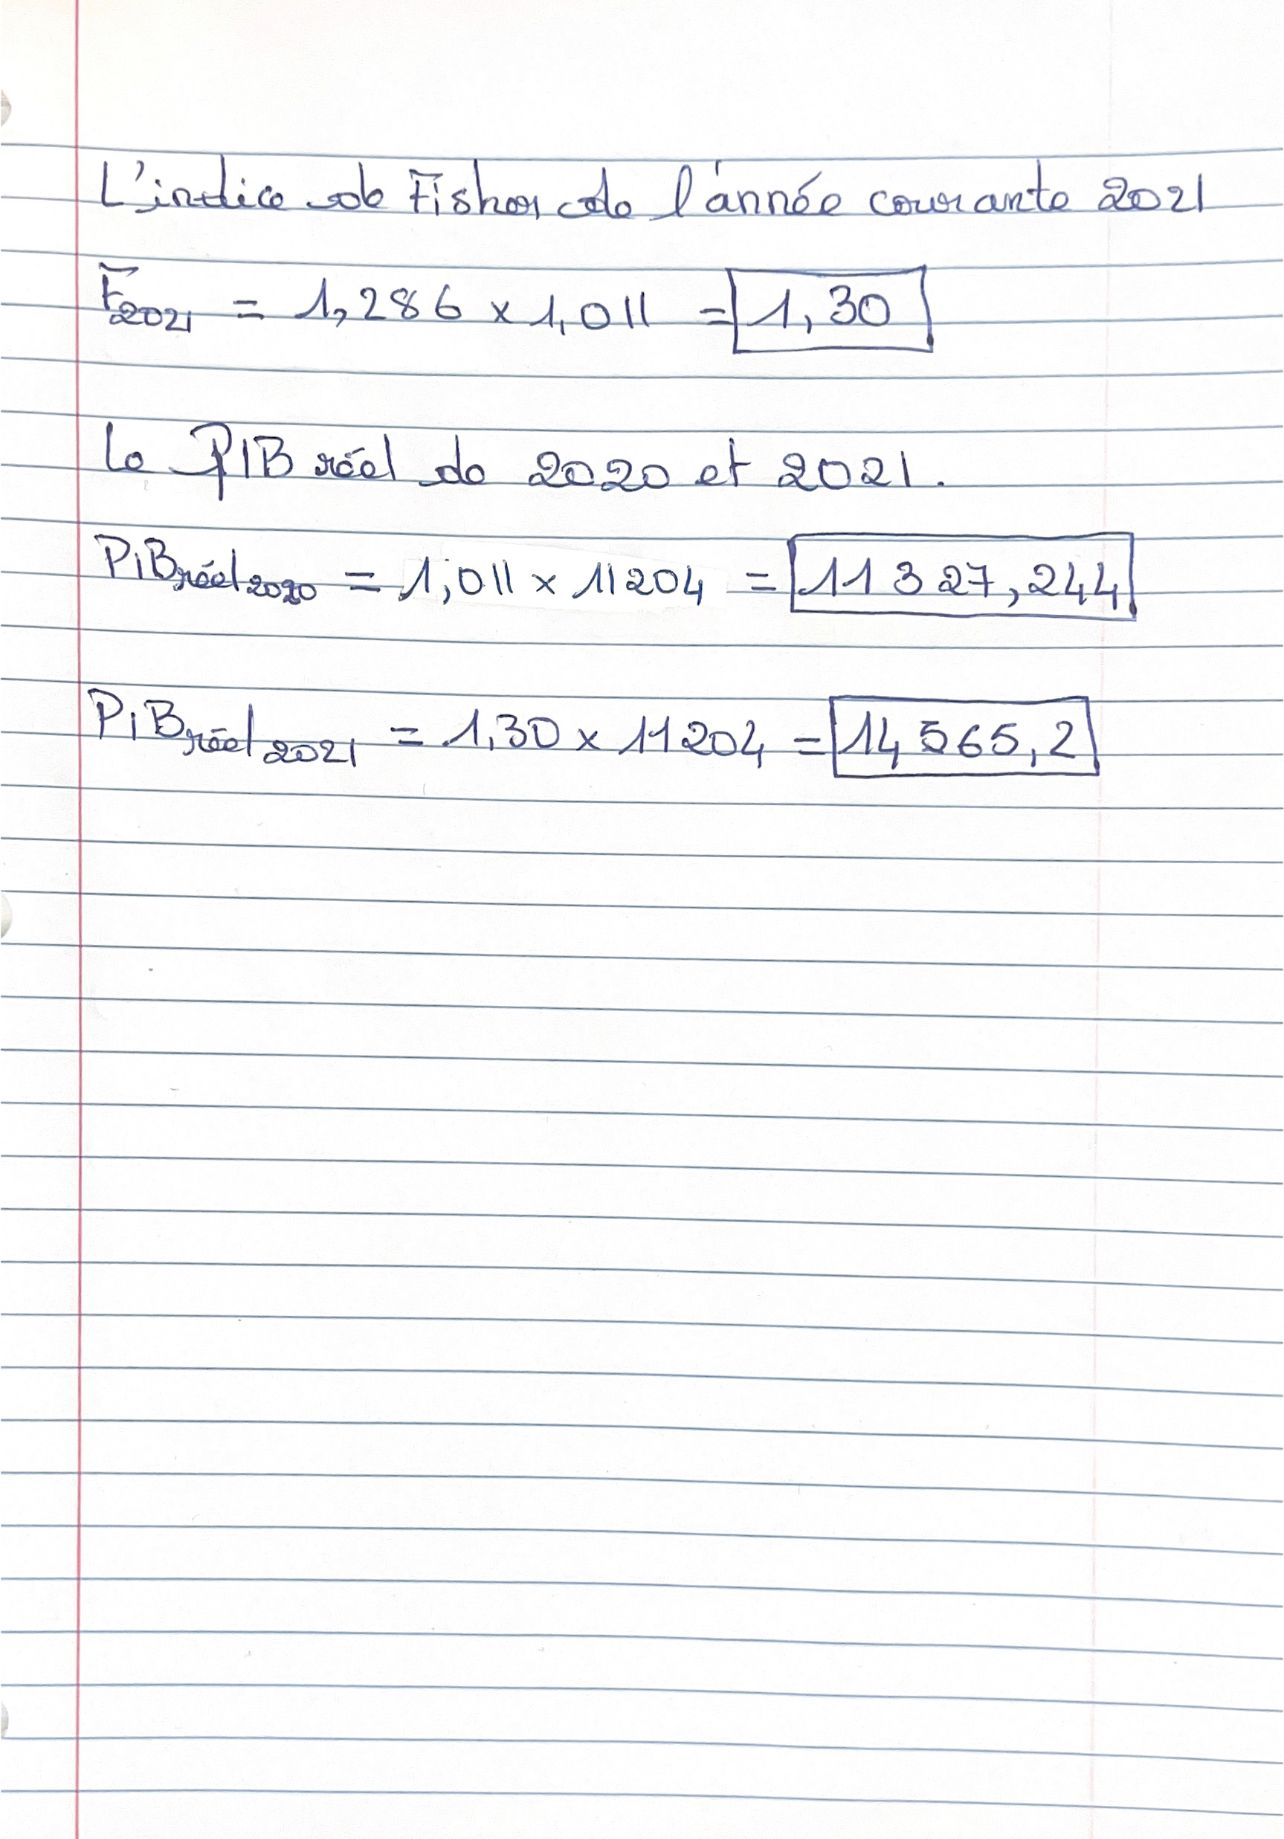 L'indice de Fisher de l'année courante 2021
F2021 = 1,286 x 1,011 = 1,30
Le PIB réel de 2020 et 2021.
PiBréel2020 = 1,011 x 11204 = 11 327,244
PiBréel2021 = 1,30 x 11204 = 14 565,2